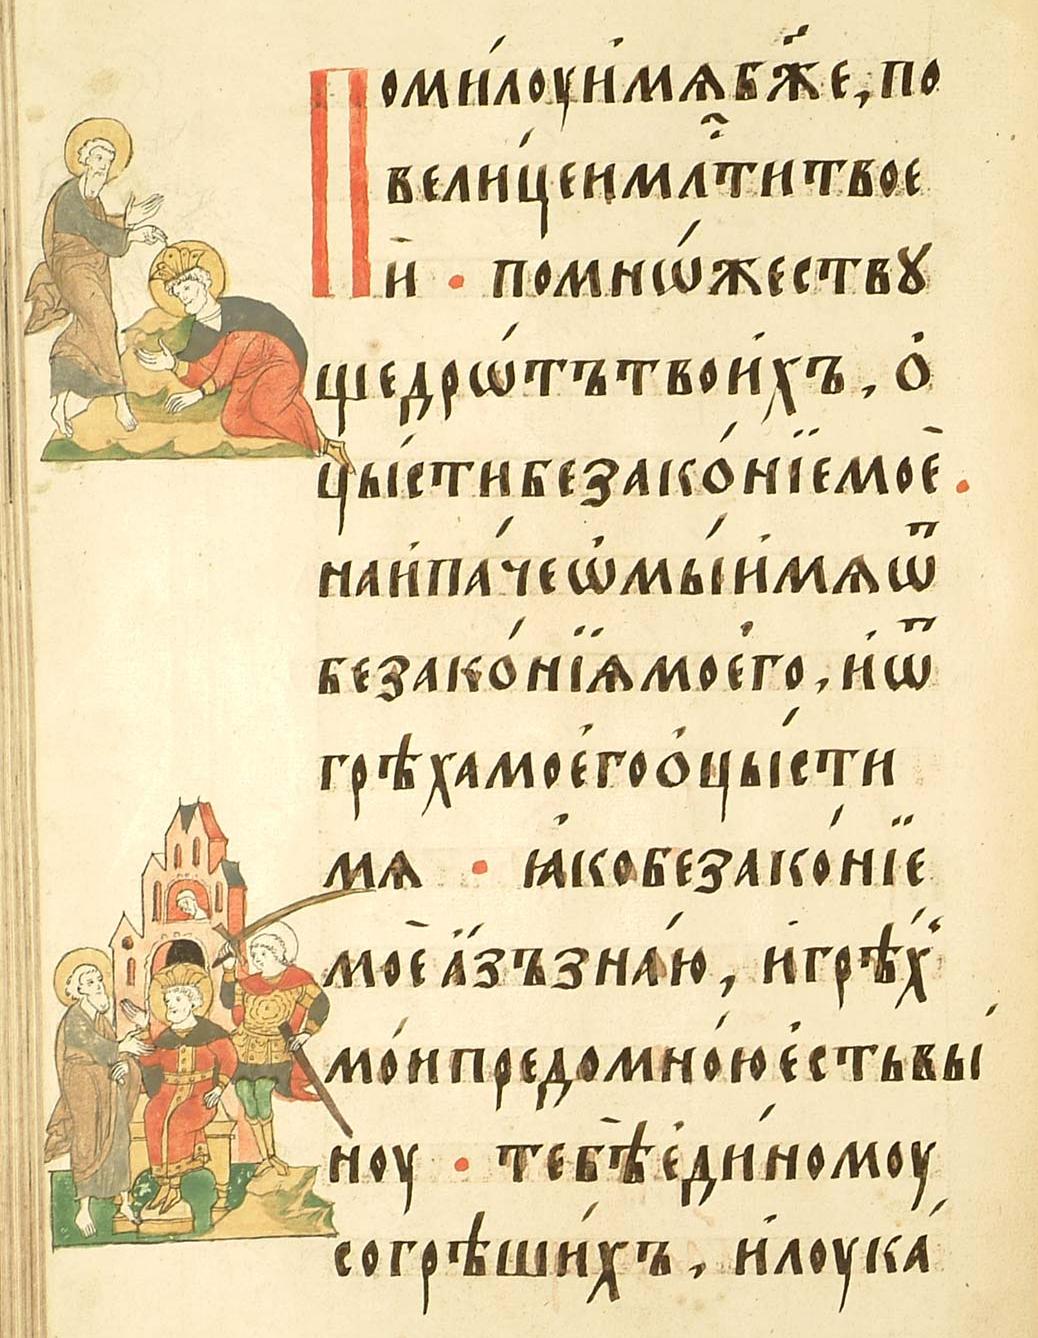 Поми́лоуи мѧ бж҃е, по
вели́цеи мл҇ти твое
ѝ · по мнѡ́жествꙋ
щедрѡ́тъ твои́хъ, о҆
цы́сти безако́нїе моѐ.
наипа́че ѡ҆мы́и мѧ ѿ
безако́нїѧ моего̀, и҆ ѿ
грѣха моего̀ о҆цы́сти
мѧ · ꙗ҆́ко безако́нїе
моѐ а҆́зъ зна́ю, и҆ грѣ́х
мо́и предо мно́ю е҆́сть вы́
ноу · тебѣ̀ е҆ди́номоу
согрѣши́хъ, и҆ лоука́